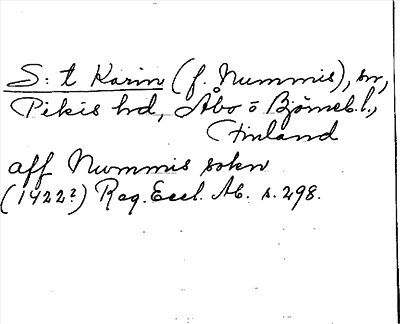 S:t Karin (f. Nummis), sn,
Pikis hd, Åbo o Björneb.l.,
Finland
aff Nummis sokn
(1422?) Reg. Eccl. Ab. s. 298.